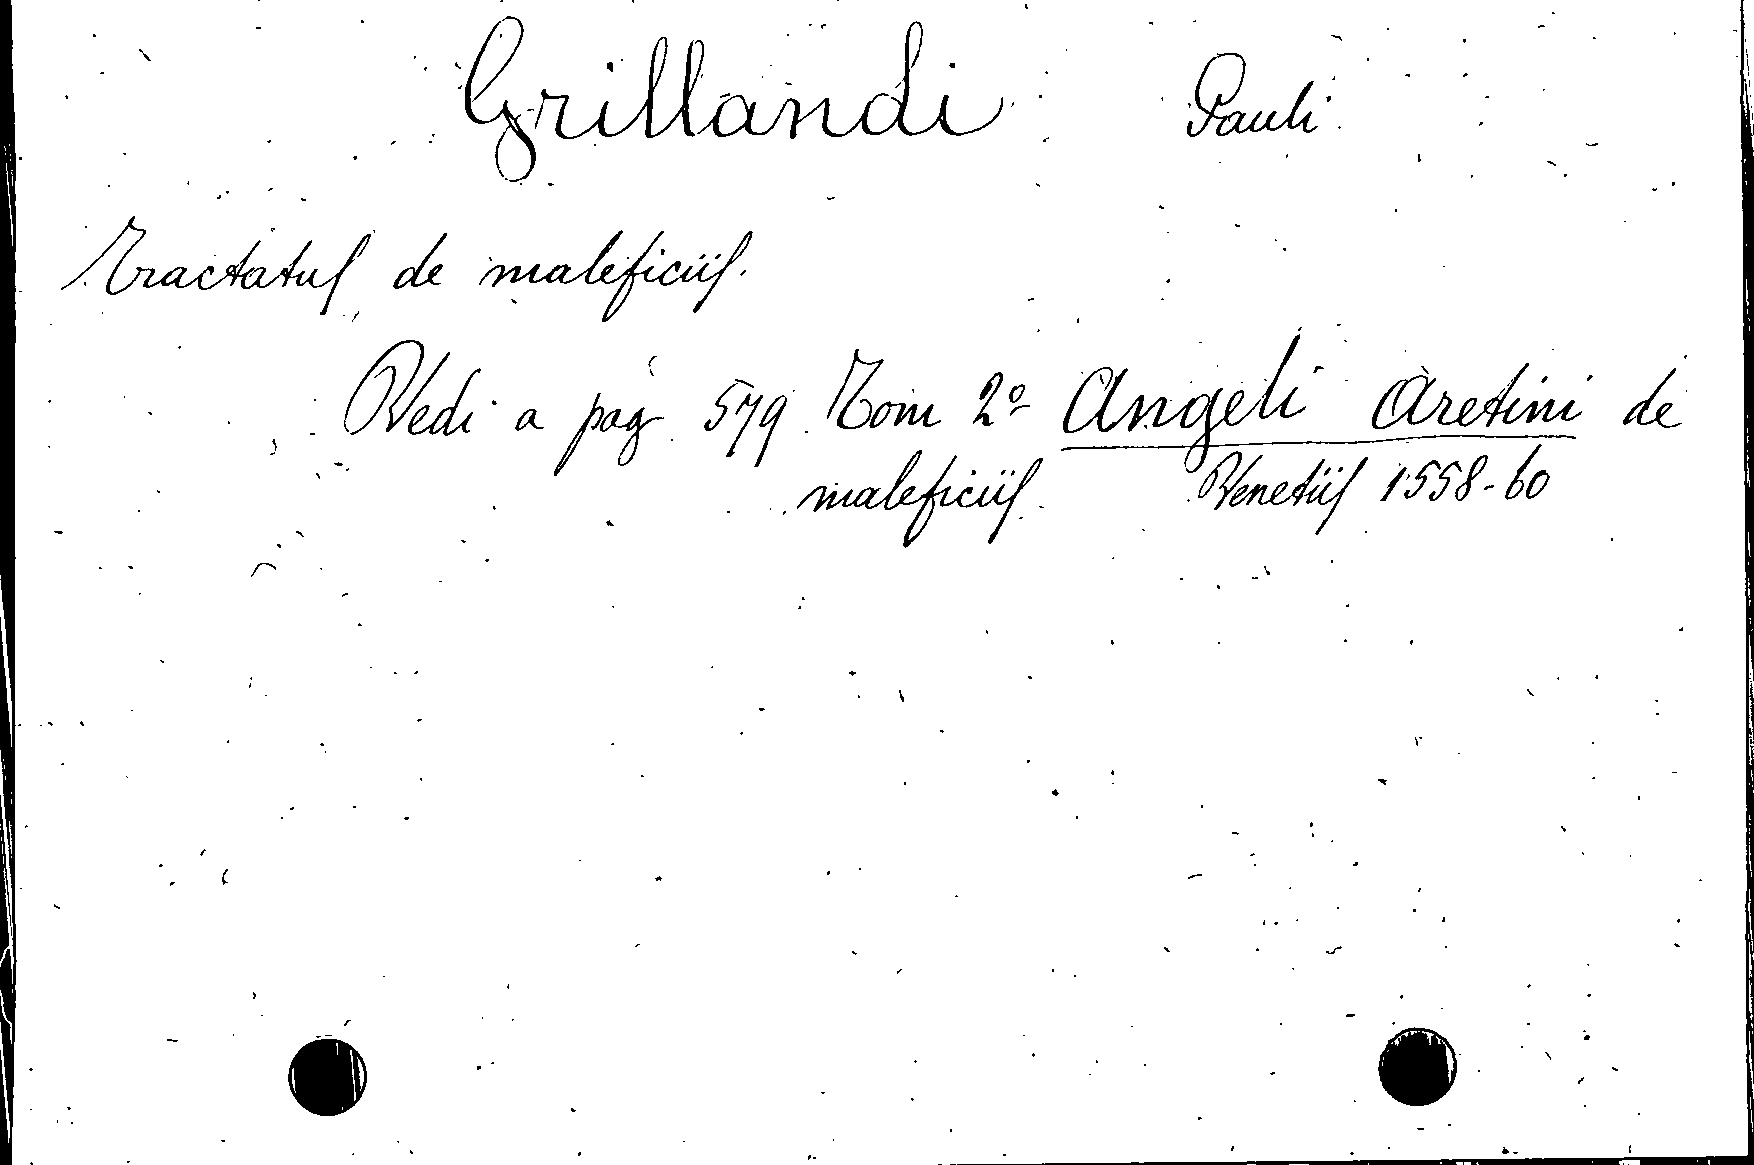 Grillandi Pauli
Tractatus de maleficiis.
Vedi a pag 579 Tom 2º Angeli Aretini de
maleficiis Venetiis 1558-60